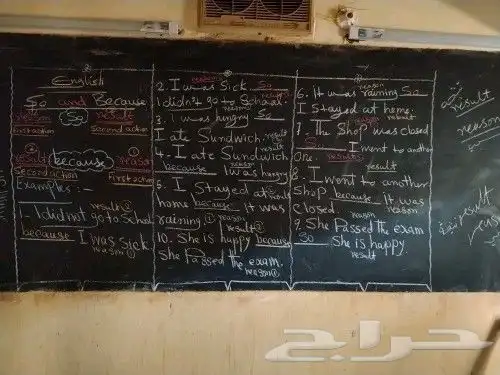 English
So and Because
reason So result
First action Second action
② result because reason ①
Second action First action
Examples :-
result ②
1. I didn't go to School
because I was Sick.
reason ①
reason
2. I was Sick So
I didn't go to School.
result
reason
3. I was hungry So
I ate Sandwich. result
4. I ate Sandwich result
because I was hungry
reason
5. I Stayed at
home because It was
raining. reason
10. She is happy because
She Passed the exam.
reason ①
reason
6. It was raining So
I Stayed at home.
result
reason
7. The Shop was closed
So I went to another
One. result
result
8. I went to another
Shop because It was
closed reason
reason
9. She Passed the exam
So She is happy.
result
result
reason
result
حراج